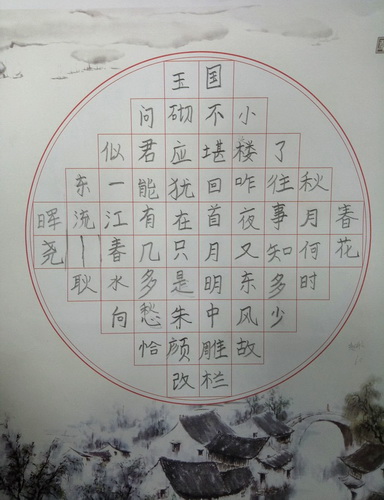 春花
秋月何时
了往事知多少
小楼咋夜又东风故
国不堪回首月明中雕栏
玉砌应犹在只是朱颜改
问君能有几多愁恰
似一江春水向
东流 | 耿
晖尧